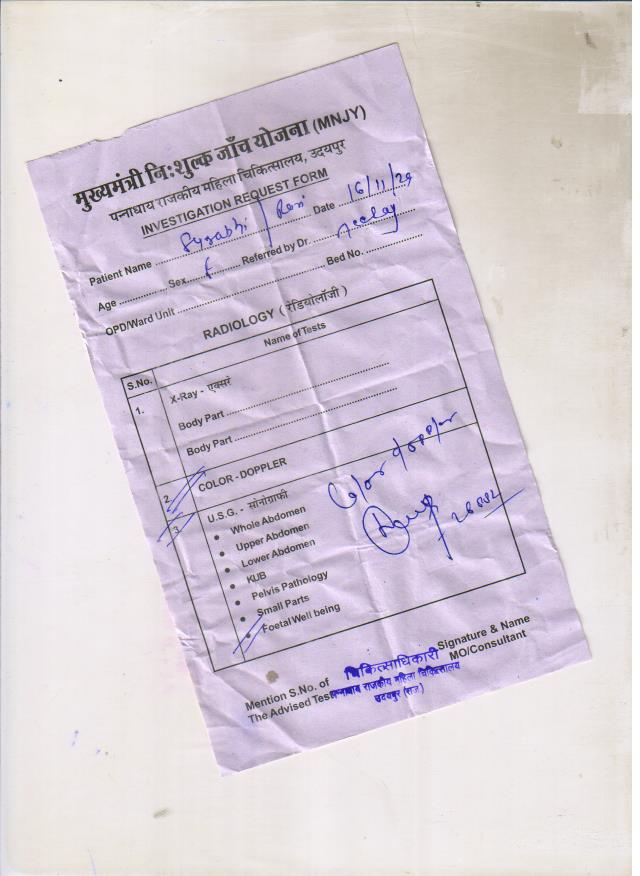 मुख्यमंत्री नि:शुल्क जाँच योजना (MNJY)
पन्नाधाय राजकीय महिला चिकित्सालय, उदयपुर
INVESTIGATION REQUEST FORM
Patient Name ........ Surabhi / ........ Date .. 16/11/24
Age ............ Sex.. f ........ Referred by Dr. ........
OPD/Ward Unit ........................ Bed No. ................
RADIOLOGY ( रेडियोलॉजी )
S.No. Name of Tests
1. X-Ray - एक्सरे
Body Part ................................................
Body Part ................................................
2. COLOR - DOPPLER
3. U.S.G. - सोनोग्राफी
• Whole Abdomen
• Upper Abdomen
• Lower Abdomen
• KUB
• Pelvis Pathology
• Small Parts
• Foetal Well being
Color doppler
Signature & Name
MO/Consultant
Mention S.No. of
The Advised Test
चिकित्साधिकारी
पन्नाधाय राजकीय महिला चिकित्सालय
उदयपुर (राज.)